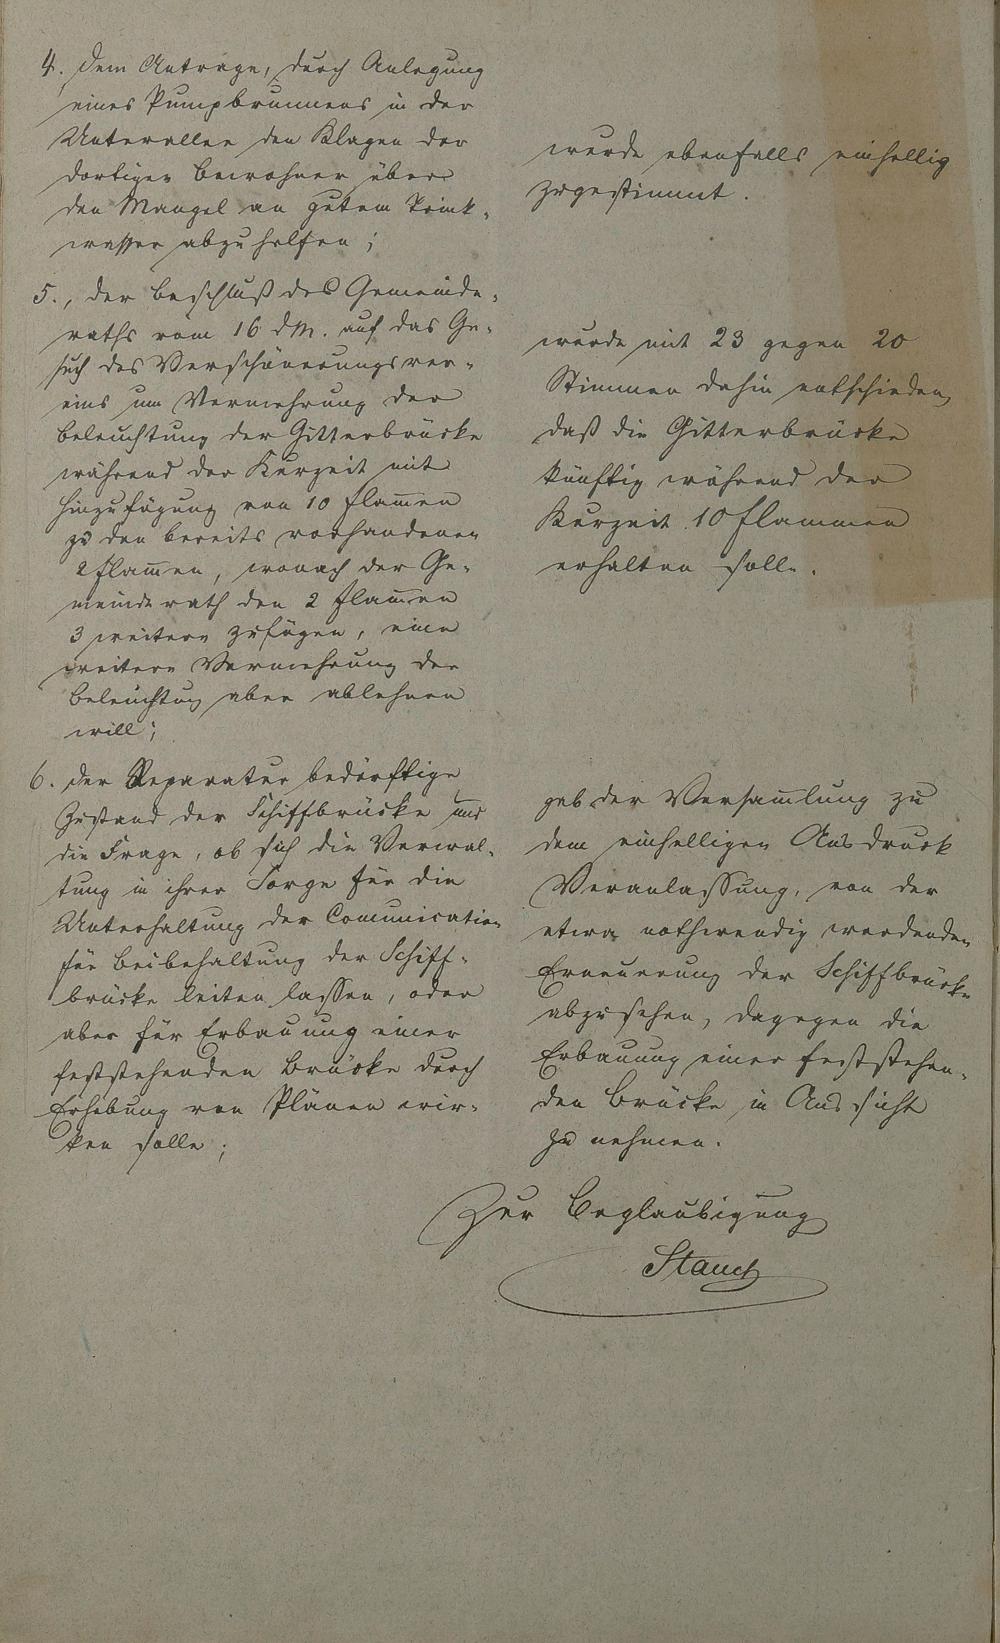 4. Dem Antrage, durch Anlegung
eines Pumpbrunnens in der
Unterallee den Klagen der
dortigen Bewohner über
den Mangel an gutem Trink-
wasser abzuhelfen;
wurde ebenfalls einhellig
zugestimmt.
5., der Beschluß des Gemeinde-
raths vom 16 d M. auf das Ge-
such des Verschönerungsver-
eins um Vermehrung der
Beleuchtung der Gitterbrücke
während der Kurzeit mit
Hinzufügung von 10 Flam̅en
zu den bereits vorhandenen
2 Flam̅en, wonach der Ge-
meinderath den 2 Flam̅en
3 weitere zufügen, eine
weitere Vermehrung der
Beleuchtung aber ablehnen
will;
wurde mit 23 gegen 20
Stimmen dahin entschieden,
daß die Gitterbrücke
künftig während der
Kurzeit 10 Flammen
erhalten solle.
6. der Reparatur bedürftige
Zustand der Schiffbrücke und
die Frage, ob sich die Verwal-
tung in ihrer Sorge für die
Unterhaltung der Com̅unication
für Beibehaltung der Schiff-
brücke leiten lassen, oder
aber für Erbauung einer
feststehenden Brücke durch
Erhebung von Plänen wir-
ken solle;
gab der Versam̅lung zu
dem einhelligen Ausdruck
Veranlassung, von der
etwa nothwendig werdenden
Erneuerung der Schiffbrücke
abzusehen, dagegen die
Erbauung einer feststehen-
den Brücke in Aussicht
zu nehmen.
Zur Beglaubigung
Stauch